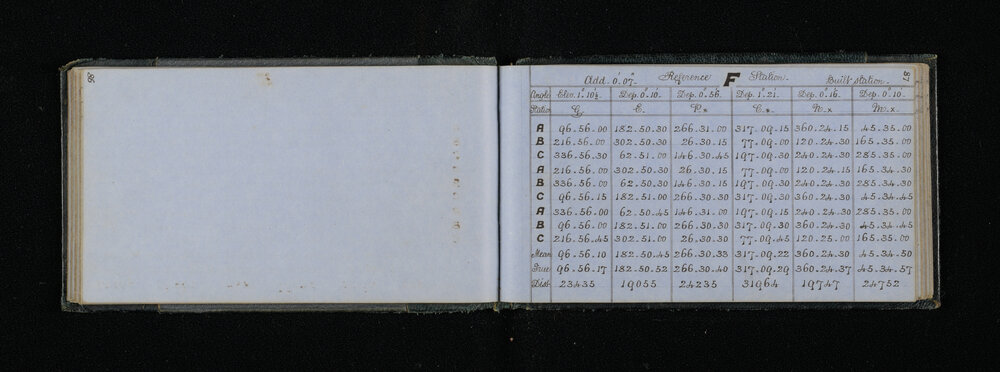 86
87
Add. 0°.07" Reference F Station. Built station.
Angle Elev. 1°.10½ Dep. 0°.10'. Dep. 0°.56'. Dep. 1°.21'. Dep. 0°.16'. Dep. 0°.10'.
Station G E. P. C. N. x M. x
A 96.56.00 182.50.30 266.31.00 317.09.15 360.24.15 45.35.00
B 216.56.00 302.50.30 26.30.15 77.09.00 120.24.30 165.35.00
C 336.56.30 62.51.00 146.30.45 197.09.30 240.24.30 285.35.00
A 216.56.00 302.50.30 26.30.15 77.09.00 120.24.15 165.34.30
B 336.56.00 62.50.30 146.30.15 197.09.30 240.24.30 285.34.30
C 96.56.15 182.51.00 266.30.30 317.09.30 360.24.30 45.34.45
A 336.56.00 62.50.45 146.31.00 197.09.15 240.24.30 285.35.00
B 96.56.00 182.51.00 266.30.30 317.09.30 360.24.30 45.34.45
C 216.56.45 302.51.00 26.30.30 77.09.45 120.25.00 165.35.00
Mean 96.56.10 182.50.45 266.30.33 317.09.22 360.24.30 45.34.50
True 96.56.17 182.50.52 266.30.40 317.09.29 360.24.37 45.34.57
Dist 23435 19055 24235 31964 19747 24752